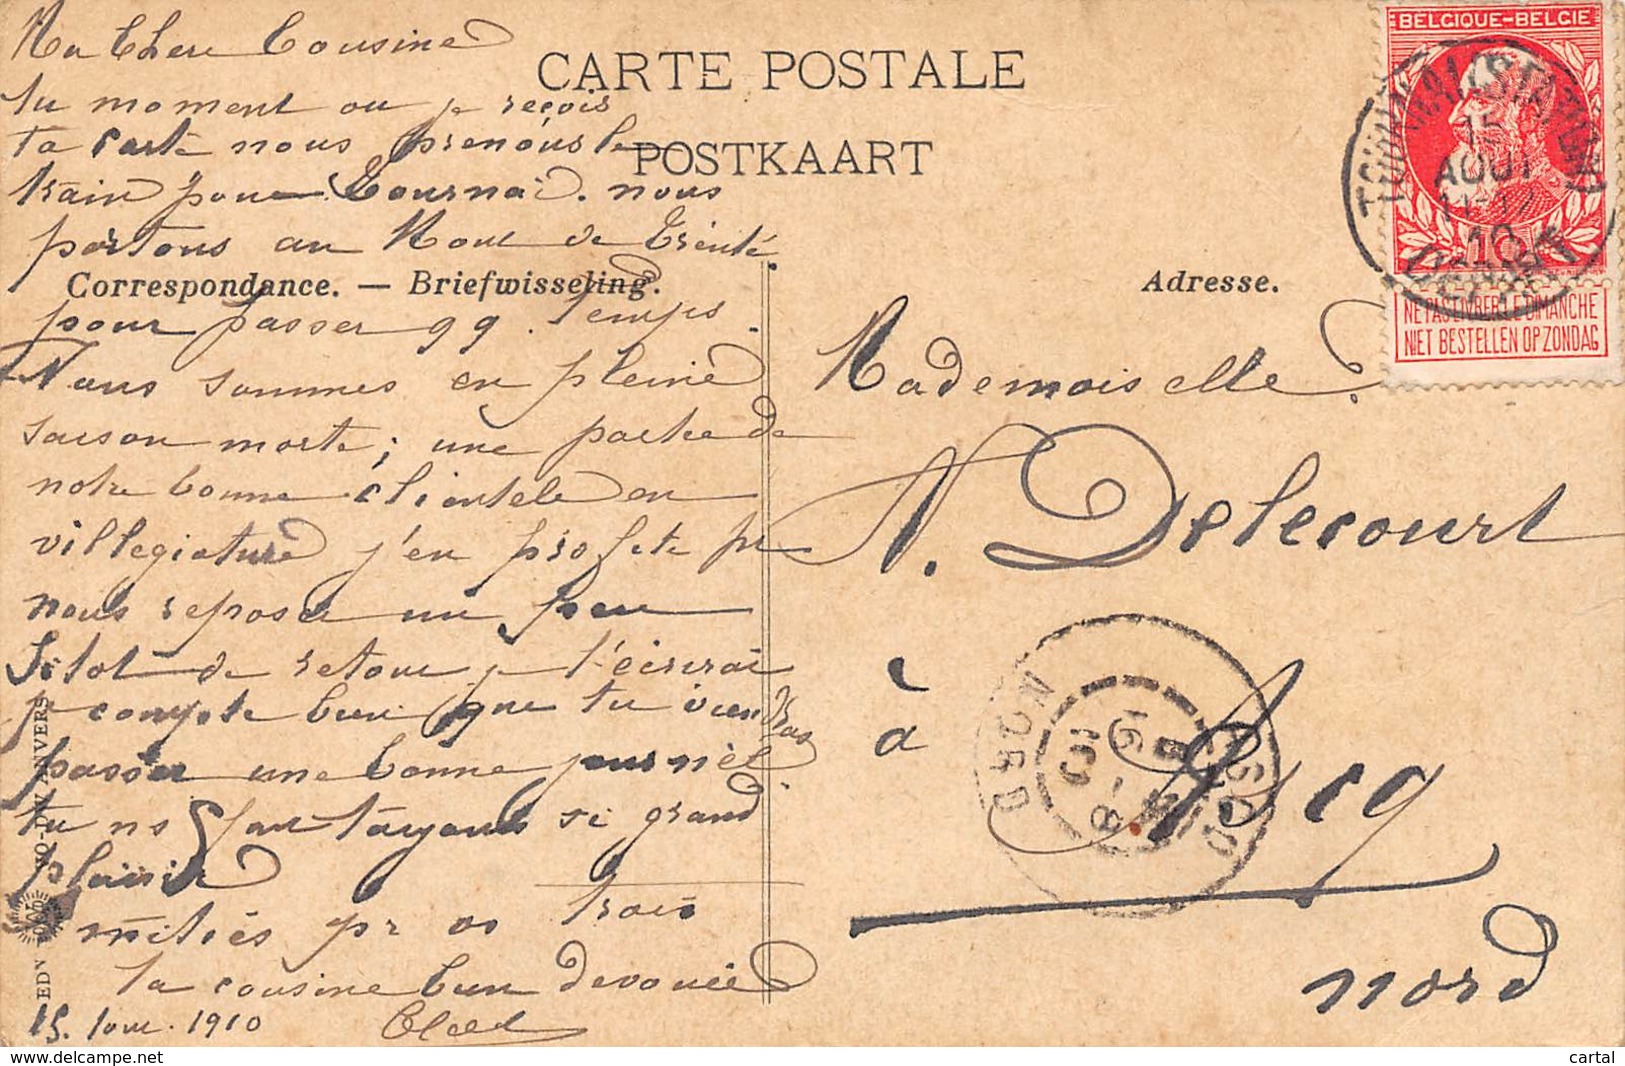 Ma Chere Cousine
CARTE POSTALE
POSTKAART
BELGIQUE-BELGIE
TOURNAI (STATION)
15
AOUT
11-12
10
DOORNIJK
NE PAS LIVRER LE DIMANCHE
NIET BESTELLEN OP ZONDAG
tu moment ou je reçois
ta carte nous prenons le
train pour Tournai. nous
partons au Mont de Trinité
Correspondance. — Briefwisseling.
Adresse.
pour passer qq. temps.
Nous sommes en pleine
saison morte; une partie de
notre bonne clientele en
villegiature j'en profite pr
nous reposer un peu
Sitot de retour je t'écrirai
je compte bien que tu viendras
passer une bonne journée
tu ns fait toujours si grand
plaisir
Amitiés pr vs trois
ta cousine bien devouée
15. 1910
Mademoiselle
N. Delecourt
à Ascq
nord
ASCQ
NORD
16
8
10
EDN
ANVERS
cartal
www.delcampe.net